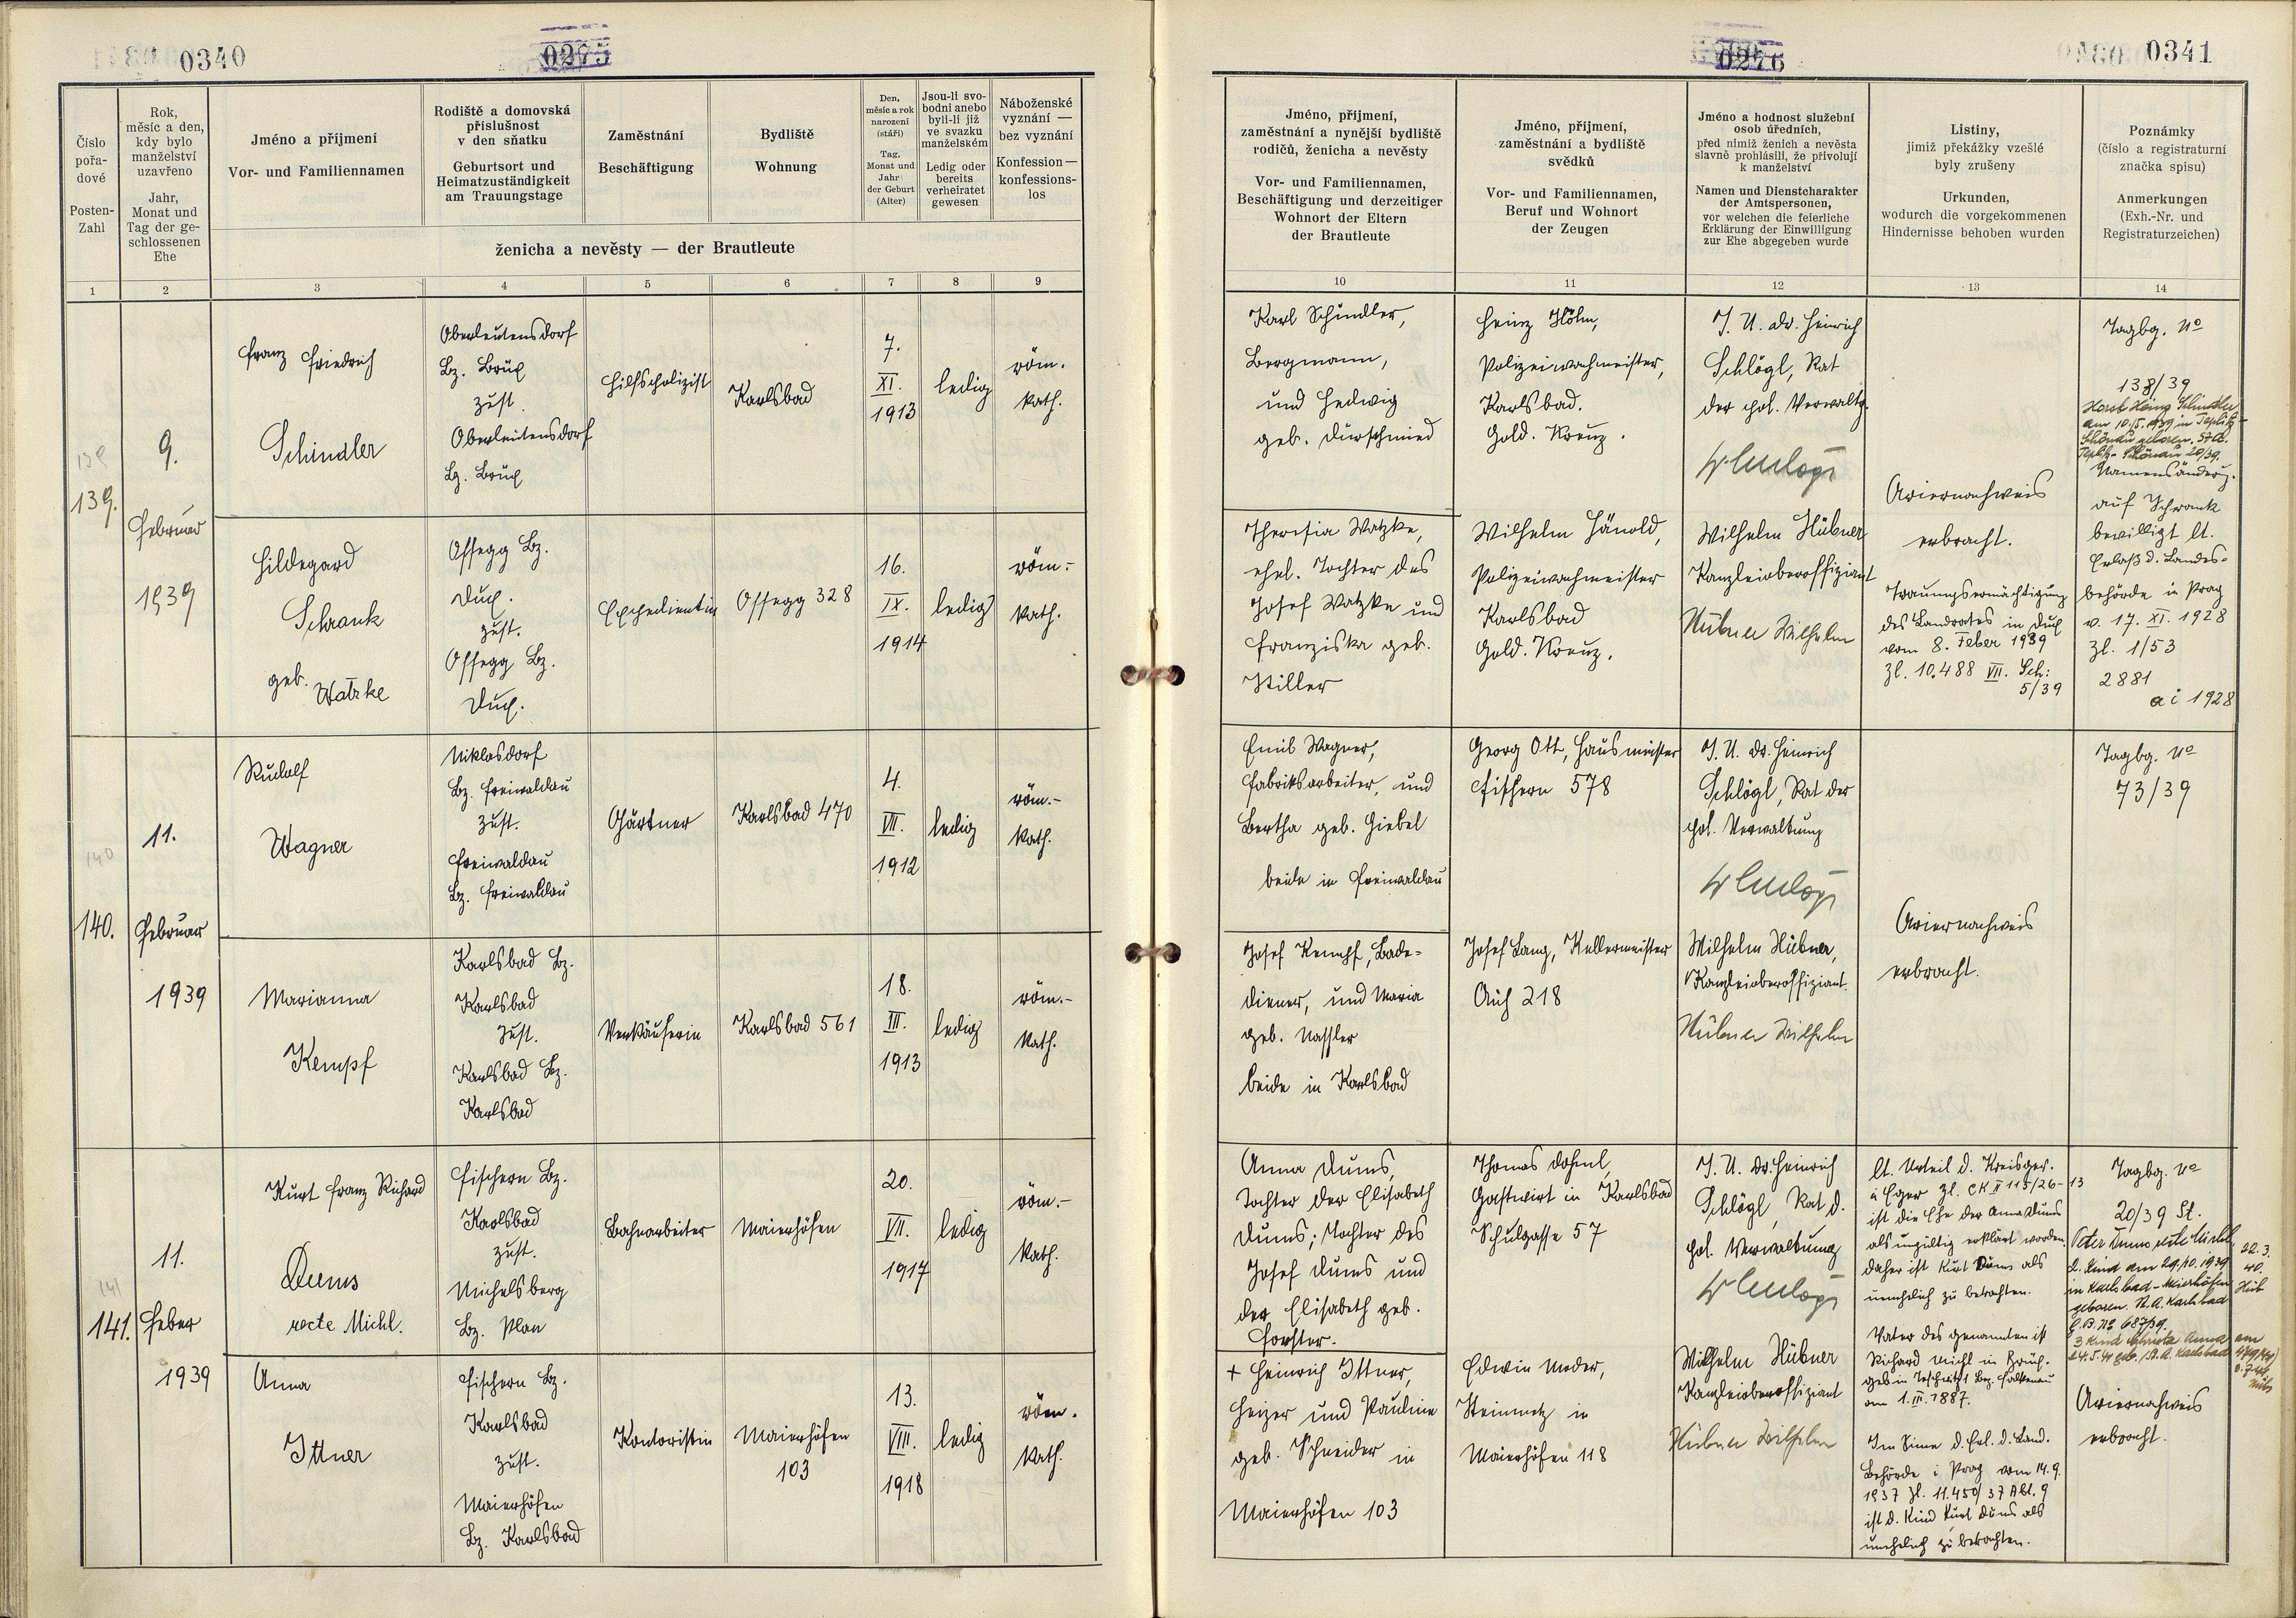 0340
0275
Číslo
pořa-
dové
Posten-
Zahl
Rok,
měsíc a den,
kdy bylo
manželství
uzavřeno
Jahr,
Monat und
Tag der ge-
schlossenen
Ehe
Jméno a příjmení
Vor- und Familiennamen
Rodiště a domovská
příslušnost
v den sňatku
Geburtsort und
Heimatzuständigkeit
am Trauungstage
Zaměstnání
Beschäftigung
Bydliště
Wohnung
Den,
měsíc a rok
narození
(stáří)
Tag,
Monat und
Jahr
der Geburt
(Alter)
Jsou-li svo-
bodni anebo
byli-li již
ve svazku
manželském
Ledig oder
bereits
verheiratet
gewesen
Náboženské
vyznání —
bez vyznání
Konfession —
konfessions-
los
ženicha a nevěsty — der Brautleute
1
2
3
4
5
6
7
8
9
139.
9.
Februar
1939
Franz Friedrich
Schindler
Oberleutensdorf
Bz. Brüx
zust.
Oberleutensdorf
Bz. Brüx
Hilfspolizist
Karlsbad
7.
XI.
1913
ledig
röm.
kath.
Hildegard
Schrank
geb. Watzke
Ossegg Bz.
Dux.
zust.
Ossegg Bz.
Dux.
Expedientin
Ossegg 328
16.
IX.
1914
ledig
röm.-
kath.
140
140.
11.
Februar
1939
Rudolf
Wagner
Niklasdorf
Bz. Freiwaldau
zust.
Freiwaldau
Bz. Freiwaldau
Gärtner
Karlsbad 470
4.
VII.
1912
ledig
röm.-
kath.
Marianna
Kempf
Karlsbad Bz.
Karlsbad
zust.
Karlsbad Bz.
Karlsbad
Verkäuferin
Karlsbad 561
18.
III.
1913
ledig
röm.-
kath.
141
141.
11.
Feber
1939
Kurt Franz Richard
Dums
recte Michl.
Fischern Bz.
Karlsbad
zust.
Michelsberg
Bz. Plan
Bahnarbeiter
Maierhöfen
20.
VII.
1917
ledig
röm.-
kath.
Anna
Ittner
Fischern Bz.
Karlsbad
zust.
Maierhöfen
Bz. Karlsbad
Kontoristin
Maierhöfen
103
13.
VIII.
1918
ledig
röm.
kath.
0276
0341
Jméno, příjmení,
zaměstnání a nynější bydliště
rodičů, ženicha a nevěsty
Vor- und Familiennamen,
Beschäftigung und derzeitiger
Wohnort der Eltern
der Brautleute
Jméno, příjmení,
zaměstnání a bydliště
svědků
Vor- und Familiennamen,
Beruf und Wohnort
der Zeugen
Jméno a hodnost služební
osob úředních,
před nimiž ženich a nevěsta
slavně prohlásili, že přivolují
k manželství
Namen und Dienstcharakter
der Amtspersonen,
vor welchen die feierliche
Erklärung der Einwilligung
zur Ehe abgegeben wurde
Listiny,
jimiž překážky vzešlé
byly zrušeny
Urkunden,
wodurch die vorgekommenen
Hindernisse behoben wurden
Poznámky
(číslo a registraturní
značka spisu)
Anmerkungen
(Exh.-Nr. und
Registraturzeichen)
10
11
12
13
14
Karl Schindler,
Bergmann,
und Hedwig
geb. Dürschmied
Heinz Höhn,
Polizeiwachmeister,
Karlsbad.
Gold. Kreuz.
J. U. Dr. Heinrich
Schlögl, Rat
der pol. Verwaltg.
Theresia Watzke,
ehel. Tochter des
Josef Watzke und
Franziska geb.
Stiller
Wilhelm Hänold,
Polizeiwachmeister
Karlsbad
Gold. Kreuz.
Wilhelm Hübner
Kanzleioberoffiziant
Hübner Wilhelm
Ariernachweis
erbracht.
Trauungsermächtigung
des Landrates in Dux
vom 8. Feber 1939
Zl. 10.488 VII. Sch:
5/39
Tagbg. No
138/39
Horst Heinz Schindler
am 10./5. 1939 in Teplitz-
Schönau geboren. St.A.
Teplitz-Schönau 20/39.
Namensänderg.
auf Schrank
bewilligt lt.
Erlaß d. Landes-
behörde in Prag
v. 17. XI. 1928
Zl. 1/53
2881
ai 1928
Emil Wagner,
Fabriksarbeiter, und
Bertha geb. Giebel
beide in Freiwaldau
Georg Ott, Hausmeister
Fischern 578
J. U. Dr. Heinrich
Schlögl, Rat der
pol. Verwaltung
Josef Kempf, Bade-
diener, und Maria
geb. Nassler
beide in Karlsbad
Josef Lang, Kellermeister
Aich 218
Wilhelm Hübner,
Kanzleioberoffiziant.
Hübner Wilhelm
Ariernachweis
erbracht.
Tagbg. No
73/39
Anna Dums,
Tochter der Elisabeth
Dums; Tochter des
Josef Dums und
der Elisabeth geb.
Forster.
Thomas Dohnl,
Gastwirt in Karlsbad
Schulgasse 57
J. U. Dr. Heinrich
Schlögl, Rat d.
pol. Verwaltung
+ Heinrich Ittner,
Heizer und Pauline
geb. Schneider in
Maierhöfen 103
Edwin Meder,
Steinmetz in
Maierhöfen 118
Wilhelm Hübner
Kanzleioberoffiziant
Hübner Wilhelm
lt. Urteil d. Kreisger.
i Eger Zl. CK II 115/26-13
ist die Ehe der Anna Dums
als ungültig erklärt worden.
daher ist Kurt Dums als
unehelich zu betrachten.
Vater des genannten ist
Richard Michl in Brüx.
Bez. Falkenau
am 1. III. 1887.
Im Sinne d. Erl. d. Land.
Behörde i Prag vom 14.9.
1937 Zl. 11.450/37 Abt. 9
ist d. Kind Kurt Dums als
unehelich zu betrachten.
Tagbg. No
20/39 St.
Peter Dums recte Michl,
2. Kind am 29.10.1939
in Karlsbad-Meierhöfen
geboren. St. A. Karlsbad
G.B. No 687/39.
22.3.
40.
Hüb
3 Kind Christa Anna am
24.5.41 geb. St. A. Karlsbad
Ariernachweis
erbracht.